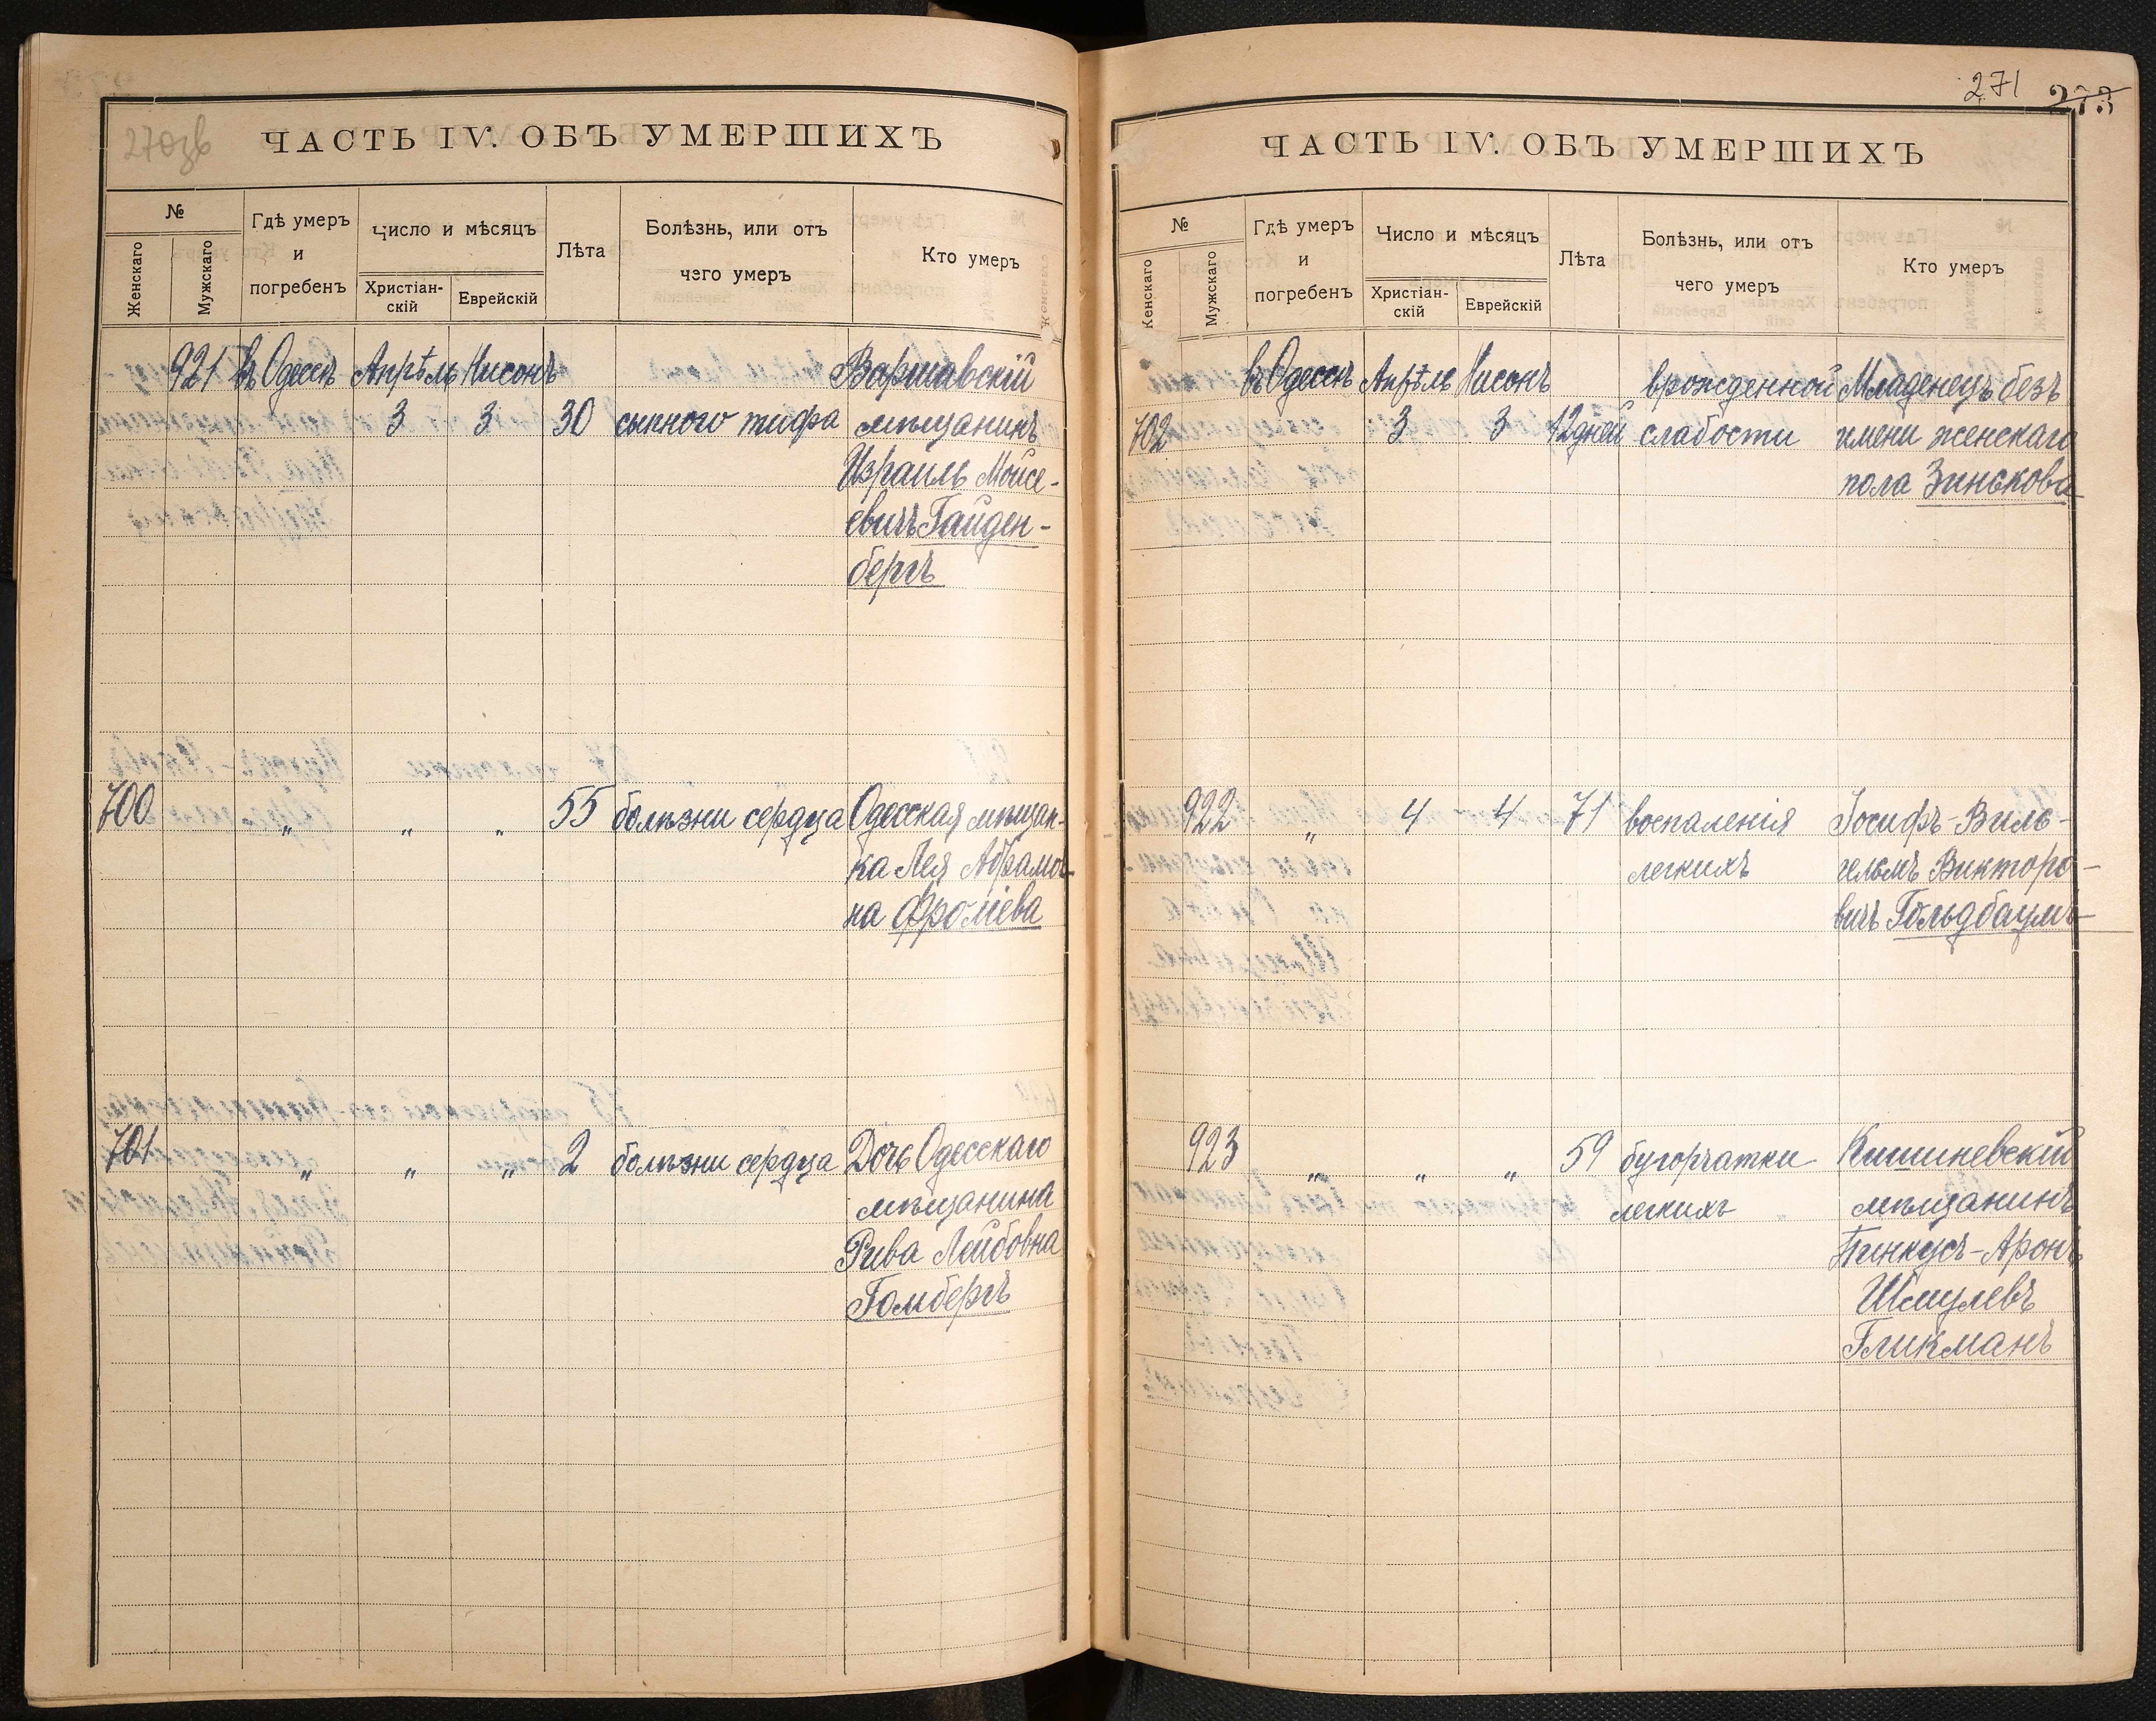 270зв
ЧАСТЬ IV. ОБЪ УМЕРШИХЪ
№
Женскаго
Мужскаго
Гдѣ умеръ
и
погребенъ
Число и мѣсяцъ
Христіан-
скій
Еврейскій
Лѣта
Болѣзнь, или отъ
чего умеръ
Кто умеръ
921 въ Одессѣ Апрѣль Нисонъ Варшавскій
3 3 30 сыпного тифа мѣщанинъ
Израиль Мойсе-
евичъ Гайден-
бергъ
700 „ „ „ 55 болѣзни сердца Одесская мѣщан-
ка Лея Абрамов-
на Фроліева
701 „ „ „ 2 болѣзни сердца Дочь Одесскаго
мѣщанина
Рива Лейбовна
Гомбергъ
271 273
ЧАСТЬ IV. ОБЪ УМЕРШИХЪ
№
Женскаго
Мужскаго
Гдѣ умеръ
и
погребенъ
Число и мѣсяцъ
Христіан-
скій
Еврейскій
Лѣта
Болѣзнь, или отъ
чего умеръ
Кто умеръ
въ Одессѣ Апрѣль Нисонъ врожденной Младенецъ безъ
702 3 3 12 дней слабости имени женскаго
пола Зинькова
922 „ 4 4 71 воспаленія Іосифъ-Виль-
легкихъ гельмъ Викторо-
вичъ Гольдбаумъ
923 „ „ „ 59 бугорчатки Кишиневскій
легкихъ мѣщанинъ
Пинкусъ-Аронъ
Шмулевъ
Гликманъ